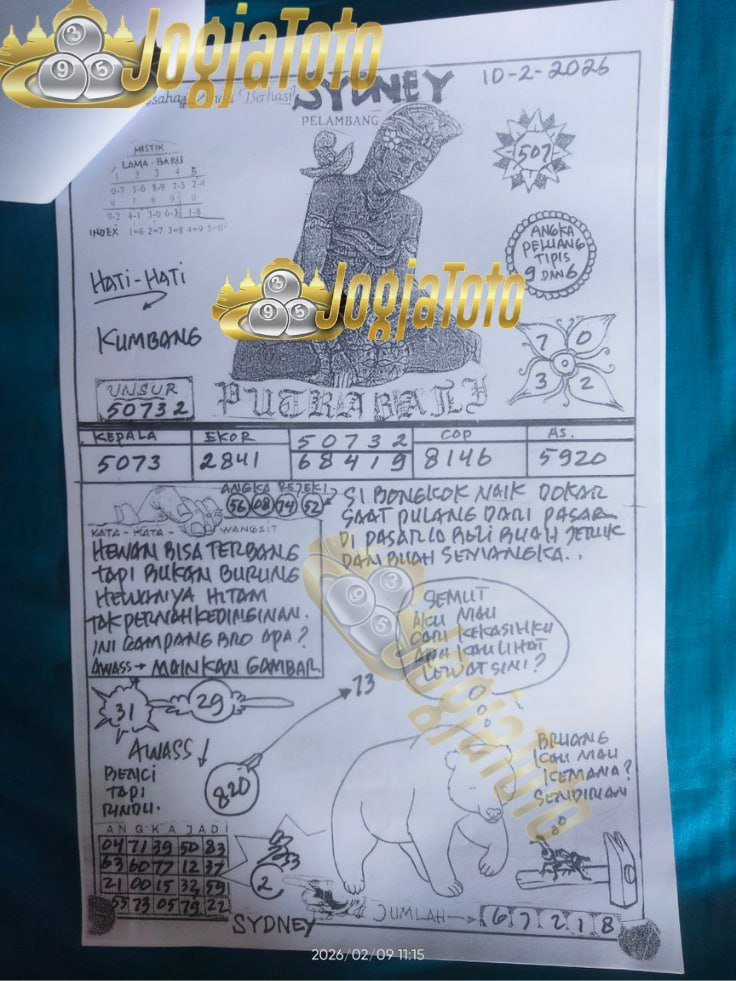 JogjaToto
SYDNEY
10-2-2026
PELAMBANG
MISTIK
LAMA - BARU
1 2 3 4 5
0-7 5-6 8-9 7-5 2-4
6 7 8 9 0
9-2 4-1 3-0 6-3 1-8
INDEX 1=6 2=7 3=8 4=9 5=0
507
ANGKA
PELUANG
TIPIS
9 DAN 6
HATI-HATI
KUMBANG
JogjaToto
7 0
3 2
UNSUR
50732
PUTRA BALI
KEPALA EKOR 50732 COP AS.
5073 2841 68419 8146 5920
ANGKA REJEKI
56 08 74 52
KATA - KATA - WANGSIT
HEWAN BISA TERBANG
TAPI BUKAN BURUNG
HEWANNYA HITAM
TAK PERNAH KEDINGINAN.
INI GAMPANG BRO APA?
AWASS → MAINKAN GAMBAR
SI BONGKOK NAIK DOKAR
SAAT PULANG DARI PASAR
DI PASAR IA BELI BUAH JERUK
DAN BUAH SEMANGKA..
SEMUT
AKU MAU
CARI KEKASIHKU
APA KAU LIHAT
LEWAT SINI?
JogjaToto
31
29
73
AWASS!
BENCI
TAPI
RINDU.
820
BRUANG
KAU MAU
KEMANA?
SENDIRIAN
ANGKA JADI
04 71 39 50 83
63 60 77 12 37
21 00 15 32 59
55 73 05 79 22
53
2
SYDNEY
JUMLAH → 6 7 2 1 8
2026/02/09 11:15